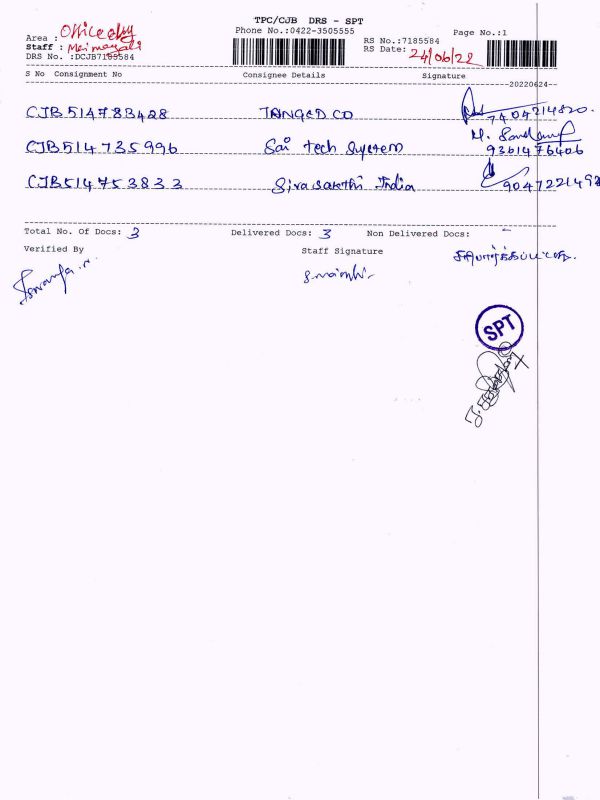 TPC/CJB DRS - SPT
Phone No.:0422-3505555
Page No.:1
Area :
Staff :
RS No.:7185584
RS Date: 24/06/22
DRS No. :DCJB7185584
S No Consignment No Consignee Details Signature
20220624
CJB514783428 TANGEDCO 7404214820
CJB514735996 Sai Tech System 9361476406
CJB514753833 Sivasakthi India 9047221492
Total No. Of Docs: 3 Delivered Docs: 3 Non Delivered Docs: -
Verified By Staff Signature
SPT